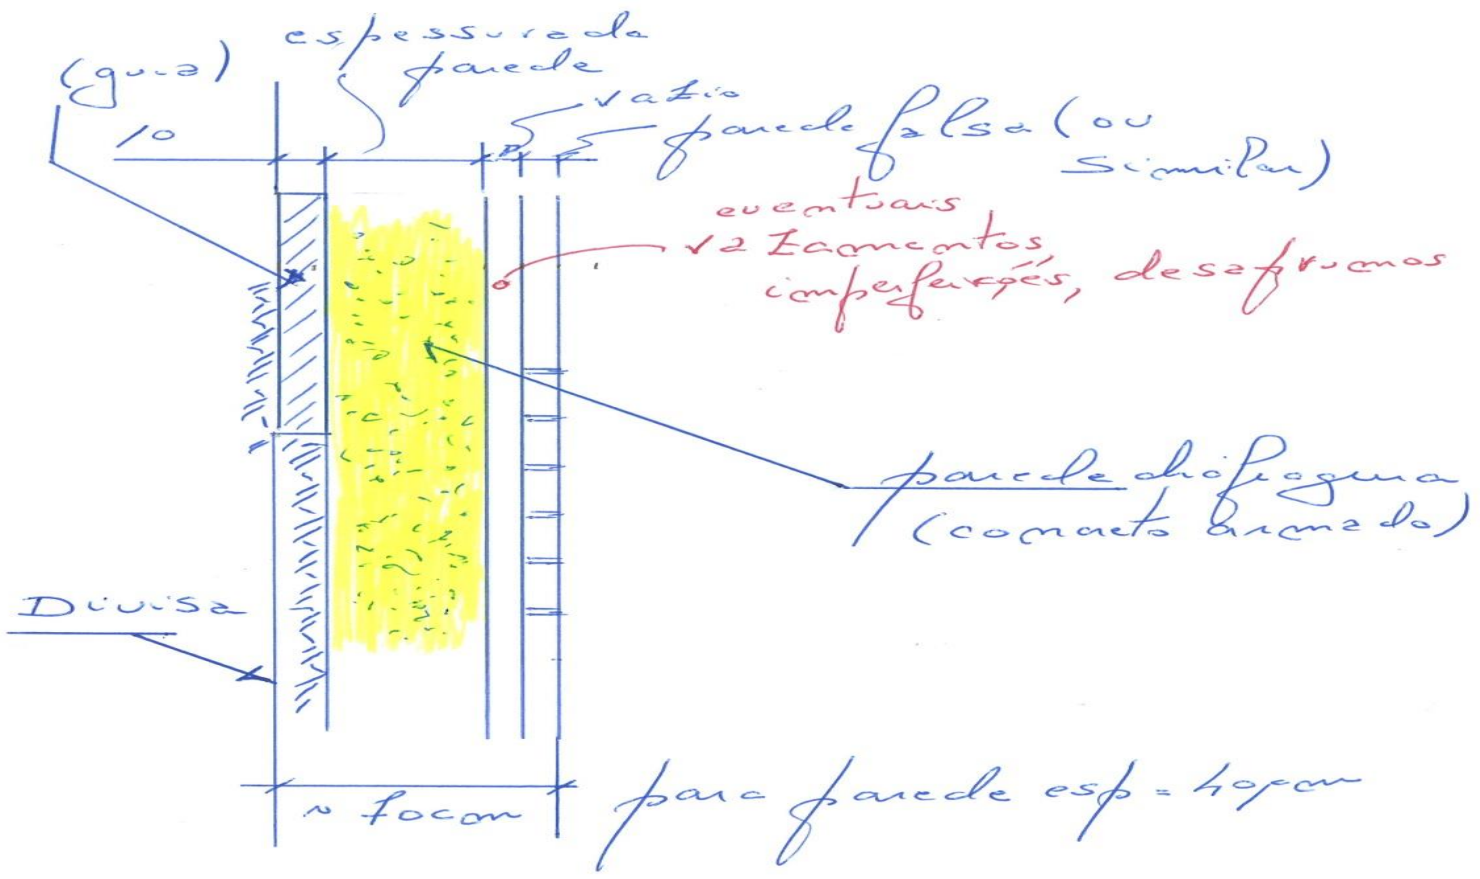 espessura da
parede
(guia)
10
vazio
parede falsa (ou
similar)
eventuais
vazamentos,
imperfeições, desaprumos
parede diafragma
(concreto armado)
Divisa
~ 70 cm
para parede esp = 40 cm